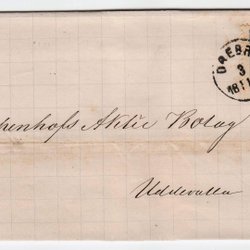 OREBR
3
1811
penhofs Aktie Bolag
Uddevalla